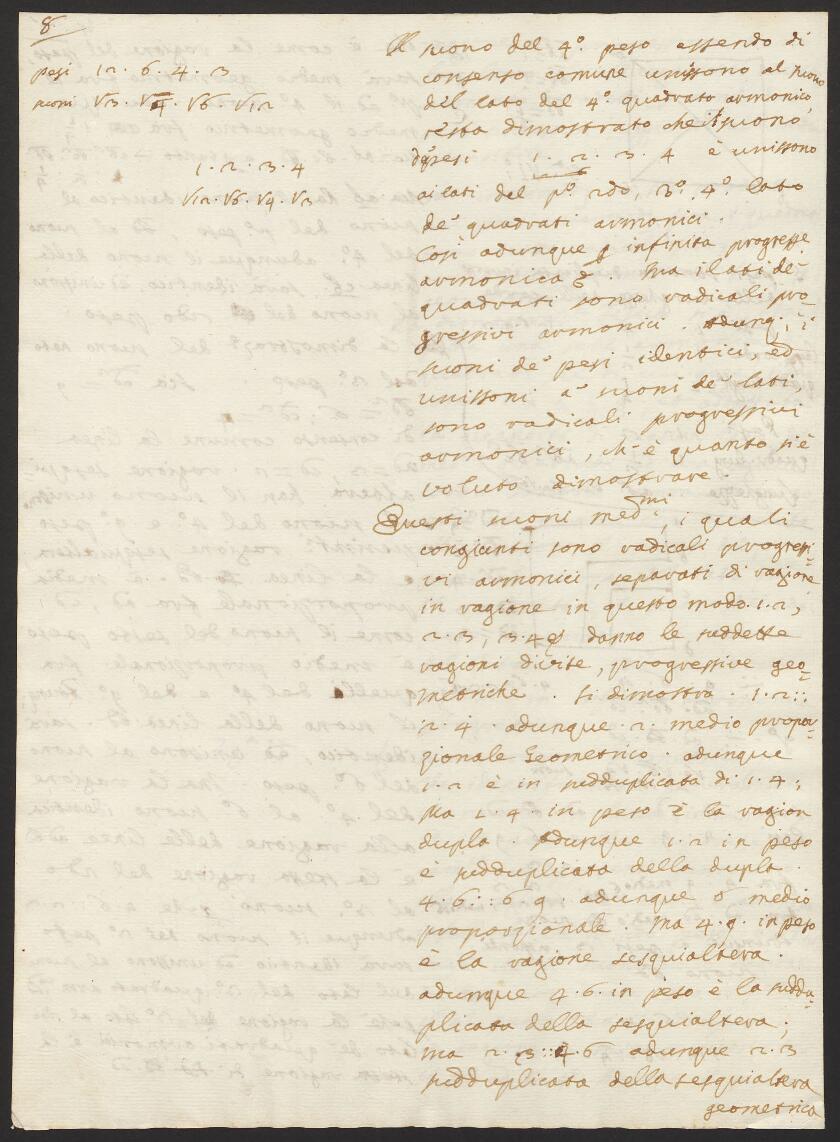 8.
pesi 12. 6. 4. 3
suoni √3. √4. √6. √12
1. 2. 3. 4
√12. √6. √4. √3
Il suono del 4º. peso essendo di
consenso comune unissono al suono
del lato del 4º. quadrato armonico,
resta dimostrato che il suono
de pesi 1. 2. 3. 4 è unissono
ai lati del pº. 2do, 3º. 4º. lato
de' quadrati armonici.
Così adunque infinita progresse.
armonica. Ma i lati de'
quadrati sono radicali pro=
gressivi armonici. Adunq; i
suoni de' pesi identici, ed
unissoni a' suoni de' lati,
sono radicali progressivi
armonici, ch'è quanto s'è
voluto dimostrare.
Questi suoni medmi, i quali
congiunti sono radicali progressi=
vi armonici, separati di ragione
in ragione in questo modo. 1. 2,
2. 3, 3. 4 danno le suddette
ragioni divise, progressive geo=
metriche. Si dimostra. 1. 2::
2. 4. adunque 2. medio propor=
zionale Geometrico. adunque
1. 2 è in sudduplicata di 1. 4;
Ma 1. 4. in peso è la ragion
dupla. Adunque 1. 2 in peso
è sudduplicata della dupla.
4. 6:: 6 9. adunque 6 medio
proporzionale. Ma 4. 9. in peso
è la ragione sesquialtera.
adunque 4. 6. in peso è la suddu=
plicata della sesquialtera;
ma 2. 3:: 4. 6 adunque 2. 3
sudduplicata della sesquialtera
geometrica